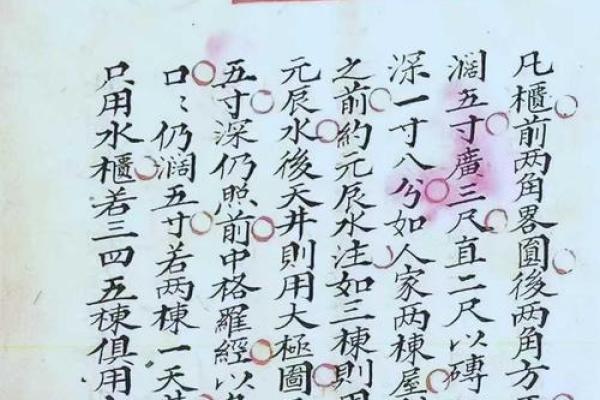 凡櫃前两角畧圓後两角方
濶五寸廣三尺直二尺以磚
深一寸八分如人家两棟屋
之前約元辰水注如三棟則
元辰水後天井則用大極圖
五寸深仍照前中格羅經以
口〻仍濶五寸若两棟一天
只用水櫃若三四五棟俱用